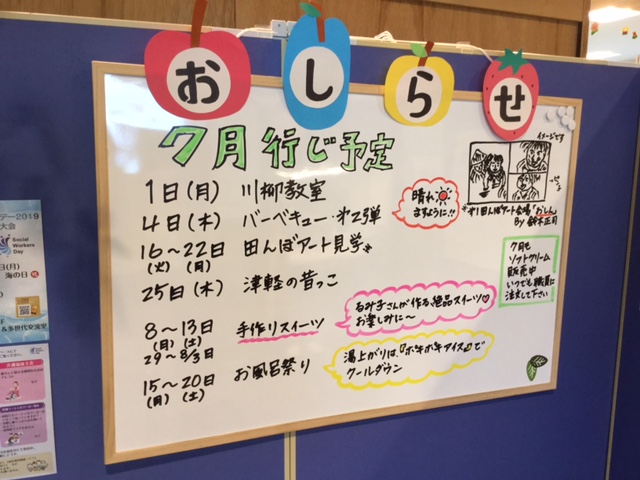 おしらせ
7月 行じ予定
1日(月) 川柳教室
4日(木) バーベキュー・第2弾
晴れますように!!
16〜22日 田んぼアート見学*
(火) (月)
25日(木) 津軽の昔っこ
8〜13日 手作りスイーツ
(月) (土)
29〜8/3日
るみ子さんが作る絶品スイーツ♡
お楽しみに〜
15〜20日 お風呂祭り
(月) (土)
湯上がりは、『ポキポキアイス』で
クールダウン
イメージです
*第1田んぼアート会場「おしん」
By 鈴木正司
7月も
ソフトクリーム
販売中
いつでも職員に
注文して下さい
デー2019
大会
Social
Workers
Day
日(月)
海の日 祝
&多世代交流室